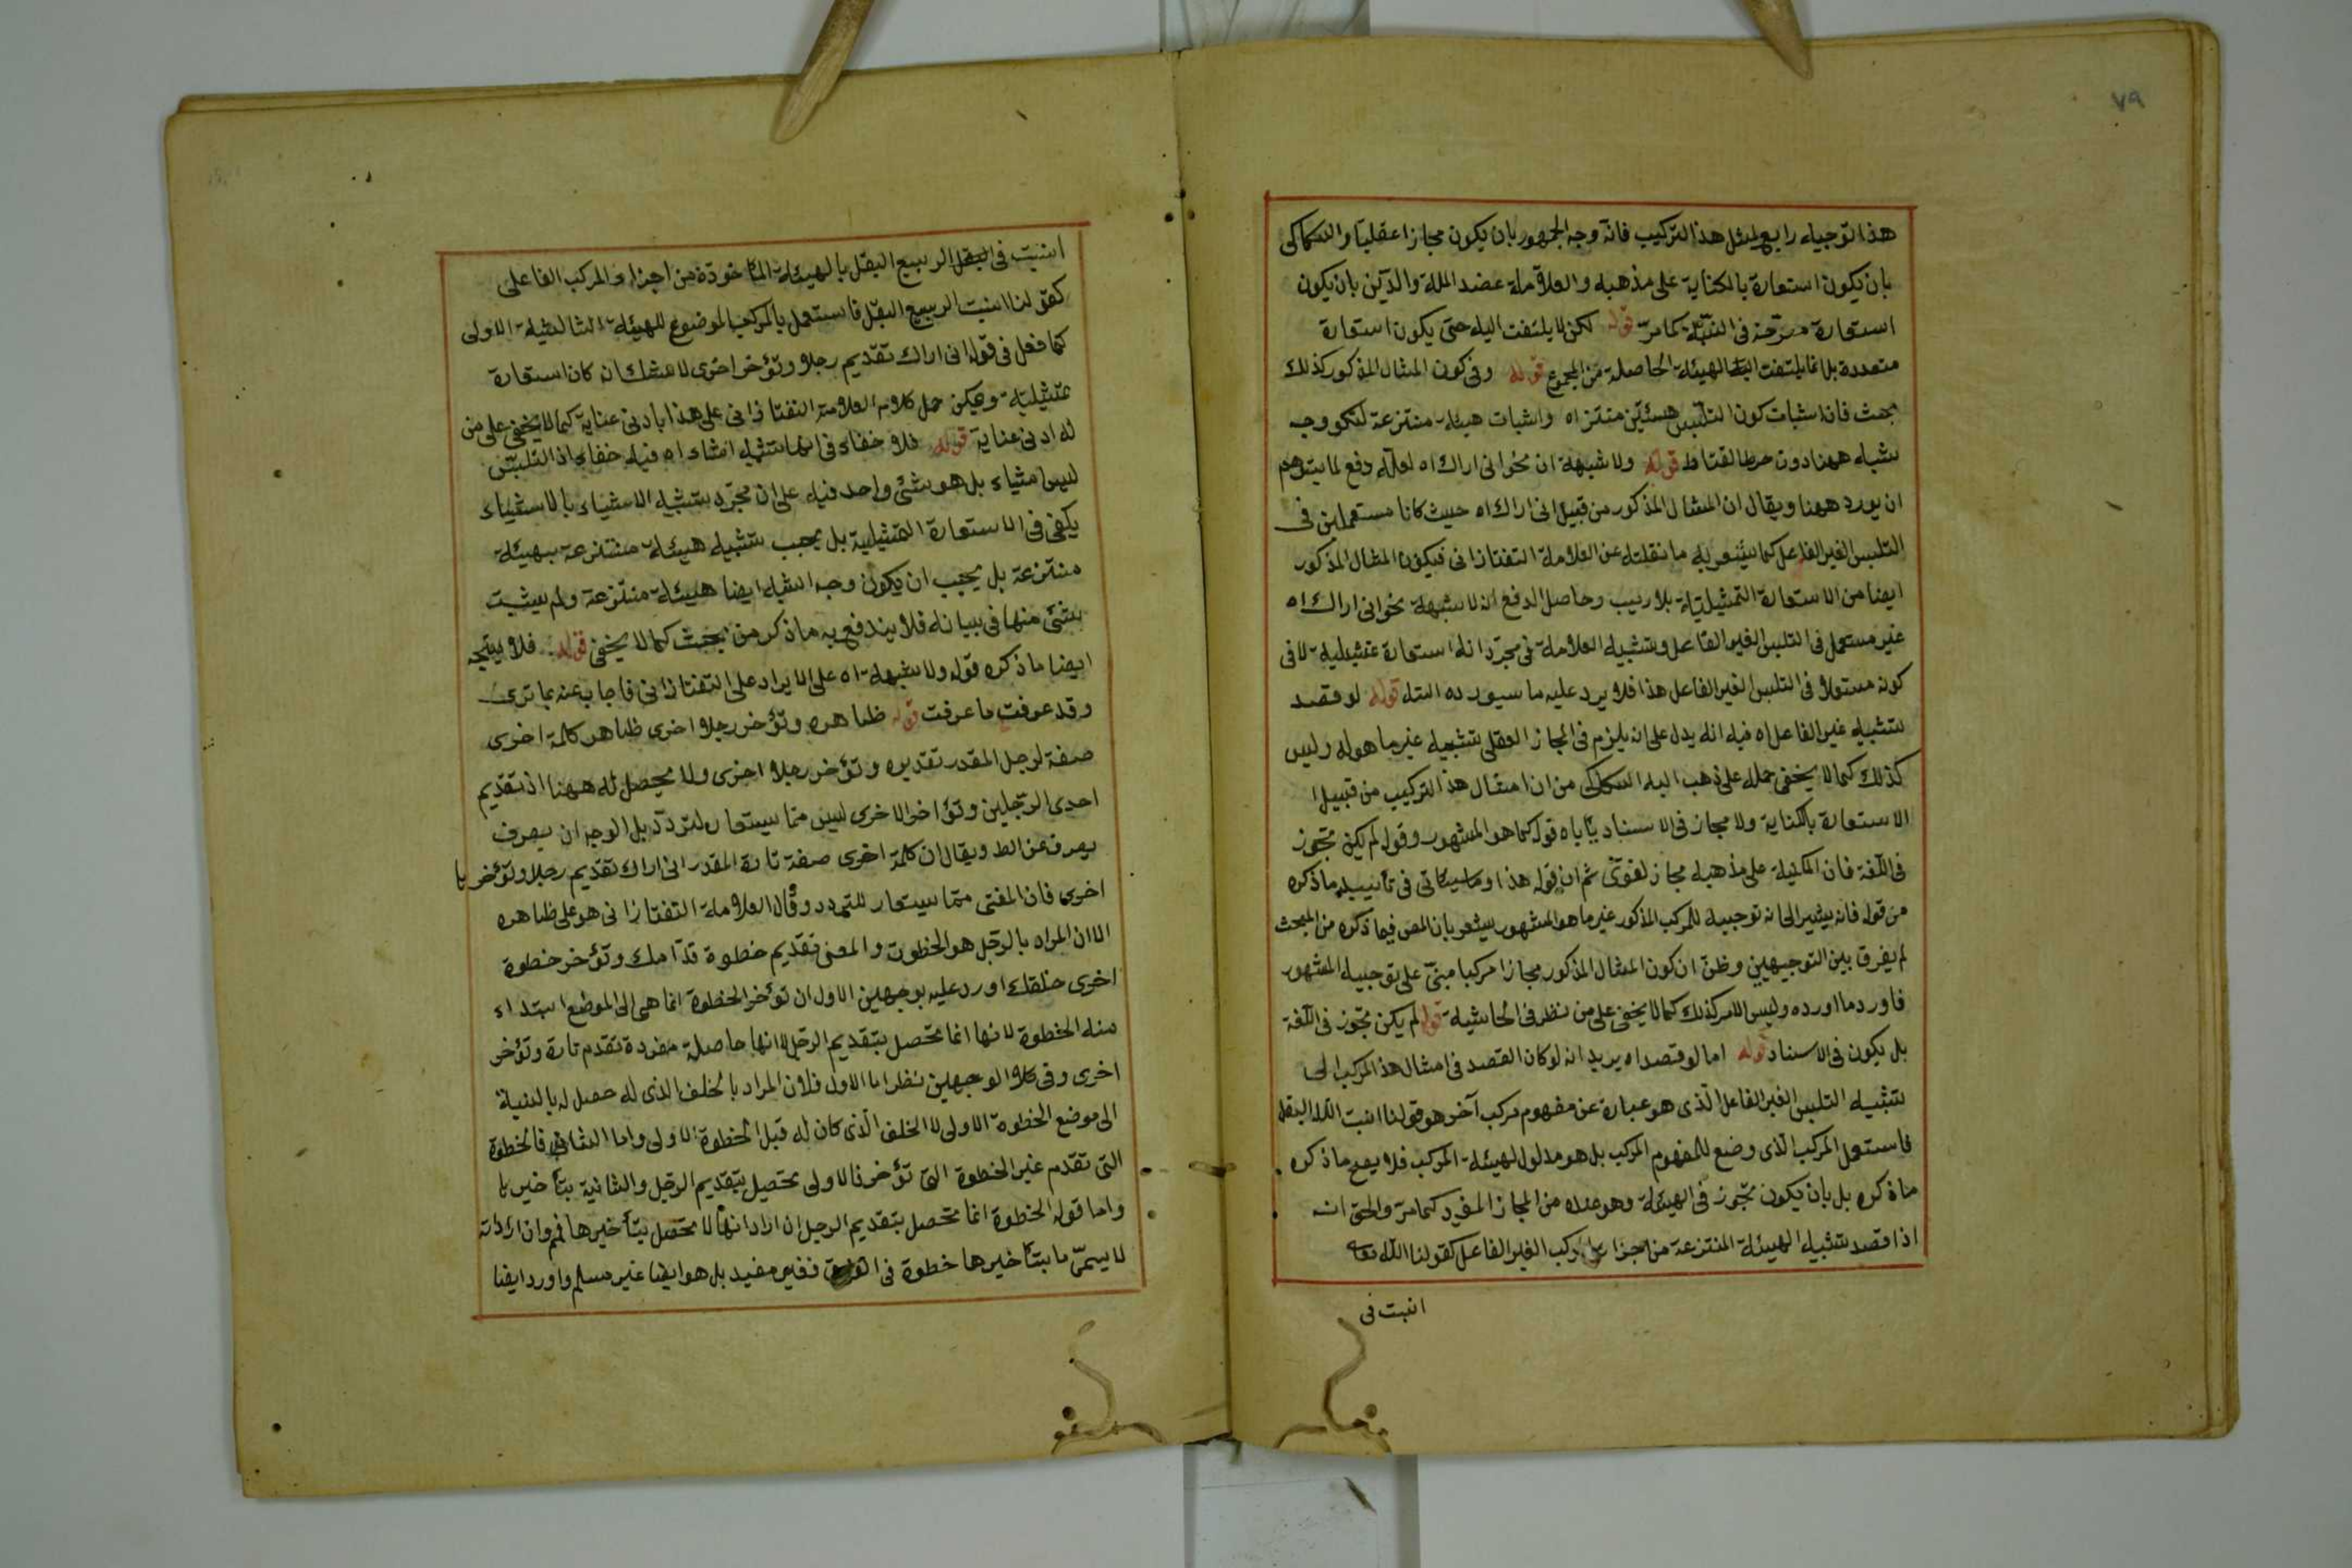 ٧٩
هذا توجيه رابع لمثل هذا التركيب فانه وجه الجمهور بان يكون مجازا عقليا والسكاكى
بان يكون استعارة بالكناية على مذهبه والعلامة عضد الملة والدين بان يكون
استعارة مصرحة فى النسبة كما مرّ قوله لكن لا يلتفت اليه حتى يكون استعارة
متعددة بل انما يلتفت الى الهيئة الحاصلة من المجموع قوله وفى كون المثال المذكور كذلك
بحث فانه اثبات كون التلبس هيئتين منتزاه واثبات هيئة منتزعة لتكو وجه
شبه ههنا دون خرط القتاط قوله ولا شبهة ان نحو انى اراك اه لعله دفع لما يتوهم
ان يورد ههنا ويقال ان المثال المذكور من قبيل انى اراك اه حيث كانا مستعملين فى
التلبس الغير الفاعل كما يشعر به ما نقلته عن العلامة التفتازانى فيكون المثال المذكور
ايضا من الاستعارة التمثيلية بلا ريب وحاصل الدفع انه لا شبهة نحو انى اراك اه
غير مستعمل فى التلبس الغير الفاعل وتشبيه العلامة فى مجرّد انه استعارة تمثيلية لا فى
كونه مستعملا فى التلبس الغير الفاعل هذا فلا يرد عليه ما سيورده البتة قوله لو قصد
تشبيه غير الفاعل اه فيه انه يدل على ان يلزم فى المجاز العقلى تشبيه غير ما هو له وليس
كذلك كما لا يخفى حمله على ذهب اليه السكاكى من ان امثال هذا التركيب من قبيل ا
الاستعارة بالكناية ولا مجاز فى الاسناد ياباه قوله كما هو المشهور وقوله لم يكن تجوز
فى اللغة فان المكنية على مذهبه مجاز لغوىّ ثم ان قوله هذا وما سيأتى فى تأييد ما ذكره
من قوله فانه يشير الى انه توجيه للمركب المذكور غير ما هو المشهور يشعر بان المص فيما ذكره من المبحث
لم يفرق بين التوجيهين وظنّ ان كون المثال المذكور مجازا مركبا مبنىّ على توجيه المشهور
فاورد ما اورده وليس الامر كذلك كما لا يخفى على من نظر فى الحاشية قوله لم يكن تجوز فى اللغة
بل يكون فى الاسناد قوله اما لو قصد اه يريد انه لو كان القصد فى امثال هذا المركب الى
تشبيه التلبس الغير الفاعل الذى هو عبارة عن مفهوم مركب آخر هو قولنا انبت الله البقل
فاستعمل المركب الذى وضع للمفهوم المركب بل هو مدلول لهيئة المركب فلا يصح ما ذكره
ما ذكره بل بان يكون تجوز فى الهيئة وهو عنده من المجاز المفرد كما مرّ والحق انه
اذا قصد تشبيه الهيئة المنتزعة من اجزاء المركب الغير الفاعل كقولنا الله تعا
انبت فى
انبت فى الربيع البقل بالهيئة المأخوذة من اجزاء المركب الفاعلى
كقولنا انبت الربيع البقل فاستعمل بالمركب الموضوع للهيئة الثانية الاولى
كما فعل فى قوله انى اراك تقديم رجلا وتؤخر اخرى لا شك انه كان استعارة
تمثيلية ويمكن حمل كلام العلامة التفتازانى على هذا بأدنى عناية كما لا يخفى على من
له ادنى عناية قوله فلا خفاء فى انها تشبيه اشياء اه فيه خفاء اذ التلبس
ليس اشياء بل هو شئ واحد فيه على ان مجرّد تشبيه الاشياء بالاشياء
يكفى فى الاستعارة التمثيلية بل يجب تشبيه هيئة منتزعة بهيئة
منتزعة بل يجب ان يكون وجه الشبه ايضا هيئة منتزعة ولم يثبت
شئ منها فى بيانه فلا يندفع به ما ذكر من بحث كما لا يخفى قوله فلا يتجه
ايضا ما ذكره قوله ولا شبهة اه على الايراد على التفتازانى فاجاب عنه بما ترى
وقد عرفت ما عرفت قوله ظاهره وتؤخر رجلا اخرى ظاهر كلمة اخرى
صفة لرجل المقدر تقديره وتؤخر رجلا اخرى ولا محصل له ههنا اذ تقديم
احدى الرّجلين وتؤاخر الاخرى ليس ممّا يستعار للتردّد بل الوجه ان يصرف
يصرف عن الظ ويقال ان كلمة اخرى صفة تارة المقدر انى اراك تقديم رجلا وتؤخر ها
اخرى فان المعنى ممّا يستعار للتردد وقال العلامة التفتازانى هو على ظاهره
الا ان المراد بالرّجل هو الخطوة والمعنى تقديم خطوة قدّامك وتؤخر خطوة
اخرى خلفك اورد عليه بوجهين الاول ان تؤخر الخطوة انما هى الى الموضع ابتداء
منه الخطوة لانها انما تحصل بتقديم الرجل لا انها حاصلة مفردة تقدم تارة وتؤخر
اخرى وفى كلا الوجهين نظر اما الاول فلان المراد بالخلف الذى له حصل له بالنسبة
الى موضع الخطوة الاولى لا الخلف الذى كان له قبل الخطوة الاولى واما الثانى فالخطوة
التى تقدم غير الخطوة التى تؤخر فالاولى تحصل بتقديم الرجل والثانية بتأخيرها
واما قوله الخطوة انما تحصل بتقديم الرجل ان اراد انها لا تحصل بتأخيرها فمم وان اراد انه
لا يسمّى ما بتأخيرها خطوة فى العرف فغير مفيد بل هو ايضا غير مسلم واورد ايضا